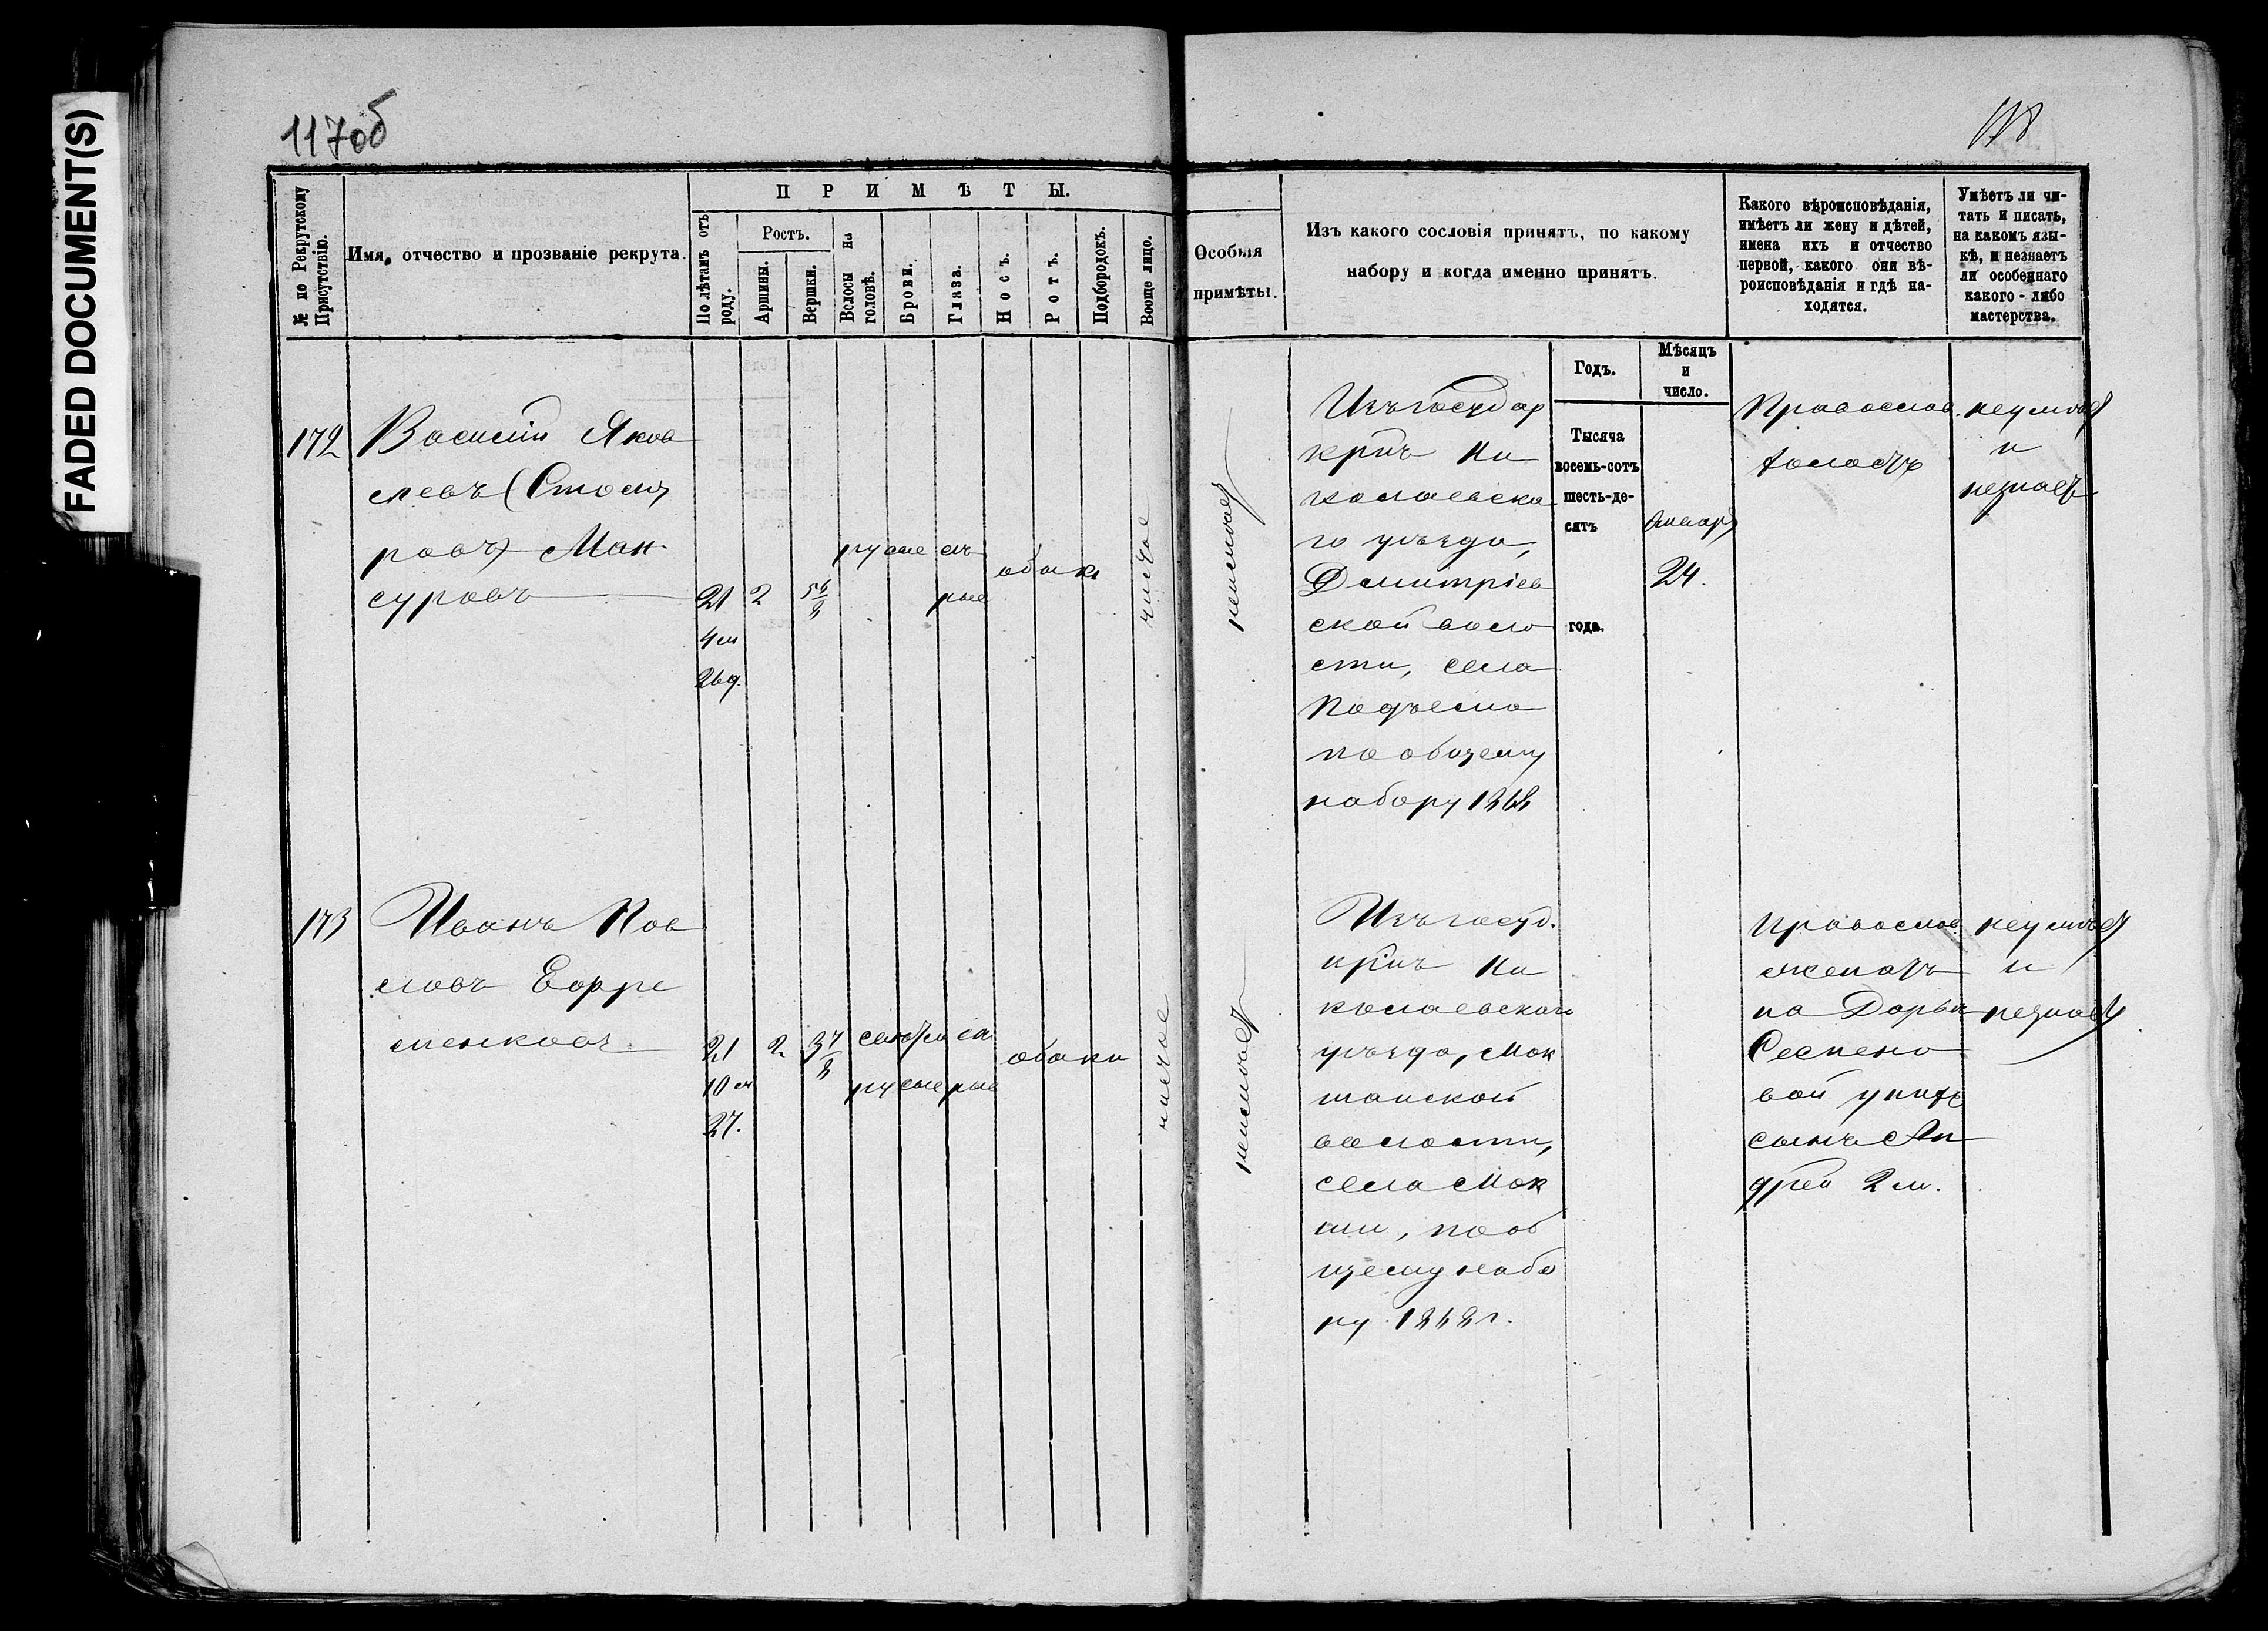 FADED DOCUMENT(S)
117об
118
№ по Рекрутскому Присутствію.
Имя, отчество и прозваніе рекрута.
ПРИМѢТЫ.
По лѣтамъ отъ роду.
Ростъ.
Аршины.
Вершки.
Волосы на головѣ.
Брови.
Глаза.
Носъ.
Ротъ.
Подбородокъ.
Вообще лицо.
Особыя
примѣты.
Изъ какого сословія принятъ, по какому
набору и когда именно принятъ.
Какого вѣроисповѣданія,
имѣетъ ли жену и дѣтей,
имена ихъ и отчество
первой, какого они вѣ-
роисповѣданія и гдѣ на-
ходятся.
Умѣетъ ли чи-
тать и писать,
на какомъ язы-
кѣ, и незнаетъ
ли особеннаго
какого-либо
мастерства.
Годъ.
Мѣсяцъ
и
число.
172
Василий Яков
левъ (Столя
ровъ) Ман
суровъ
21
4 м
26 д.
2
5 6/8
русые
сѣ
рые
обык
чистое
неимѣет
Изъ государ
крпъ Ни
колаевска
го уѣзда,
Дмитріев
ской воло
сти, села
Подъемъ
по общему
набору 1868
Тысяча
восемь-сотъ
шесть-де-
сятъ
года.
Январ
24.
Православ.
холостъ
неумѣет
и
незнаетъ
173
Иванъ Коз
ловъ Ефре
менковъ
21
10 м
27.
2
3 7/8
светло
русые
сѣ
рые
обыкн
чистое
неимѣет
Изъ госуд.
крпъ Ни
колаевского
уѣзда, Мок
шанской
волости,
села Мок
ши, по об
щему набо
ру 1868 г.
Православ.
женатъ
на Дарьи
Семено
вой у нихъ
сынъ Ан
дрей 2 м.
неумѣет
и
незнает